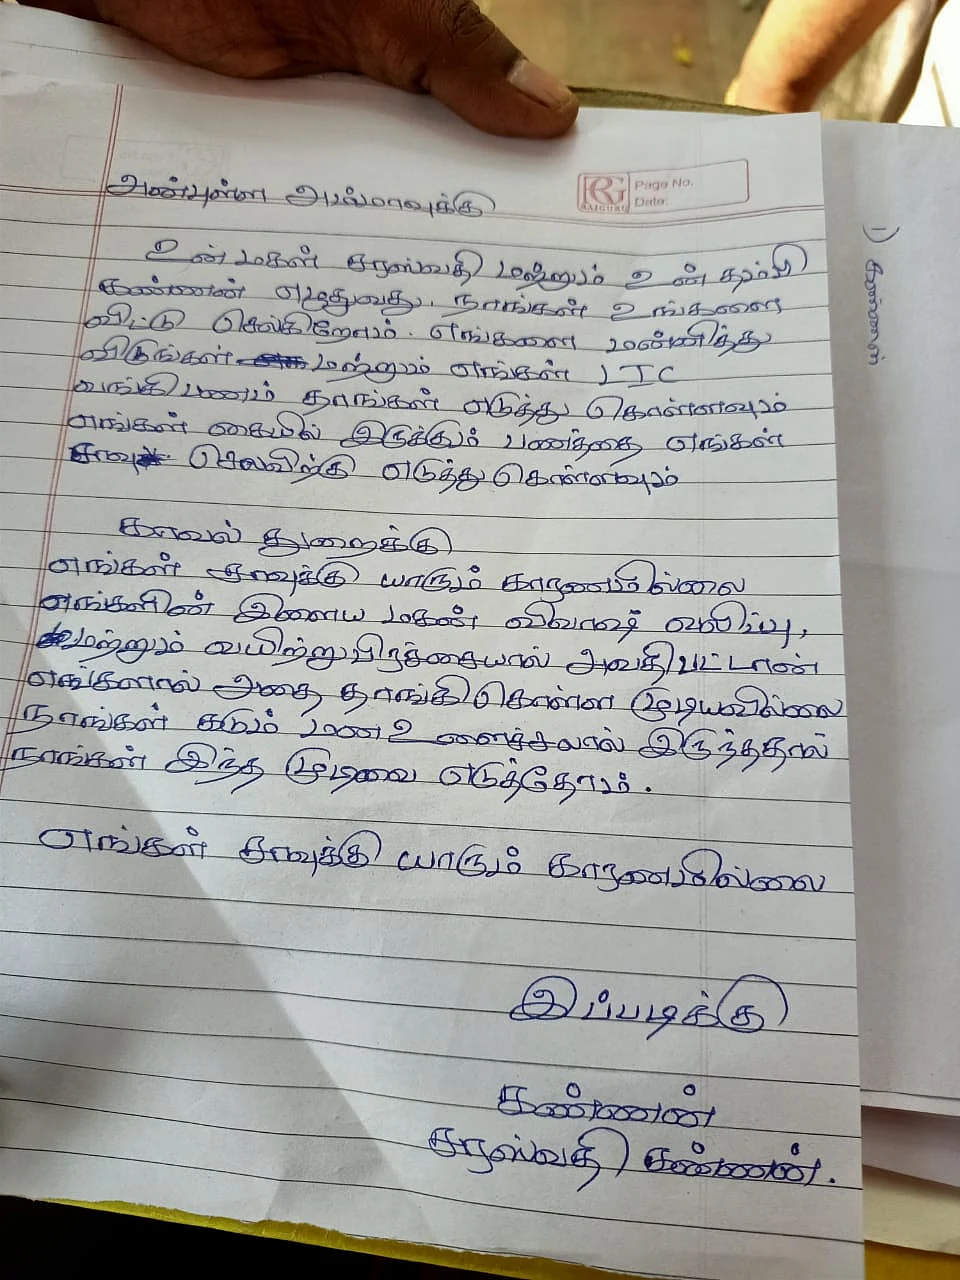 அன்புள்ள அம்மாவுக்கு
RG
RAIGURU
Page No.
Date:
உன் மகள் சரஸ்வதி மற்றும் உன் தம்பி
கண்ணன் எழுதுவது. நாங்கள் உங்களை
விட்டு செல்கிறோம். எங்களை மன்னித்து
விடுங்கள் மற்றும் எங்கள் LIC
வங்கி பணம் தாங்கள் எடுத்து கொள்ளவும்
எங்கள் கையில் இருக்கும் பணத்தை எங்கள்
சாவு செலவிற்கு எடுத்து கொள்ளவும்
காவல் துறைக்கு
எங்கள் சாவுக்கு யாரும் காரணமில்லை
எங்களின் இளைய மகன் வலிப்பு,
மற்றும் வயிற்று பிரச்சையால் அவதிபட்டான்
எங்களால் அதை தாங்கி கொள்ள முடியவில்லை
நாங்கள் கடும் மன உளைச்சலால் இருந்ததால்
நாங்கள் இந்த முடிவை எடுத்தோம்.
எங்கள் சாவுக்கு யாரும் காரணமில்லை
இப்படிக்கு
கண்ணன்
சரஸ்வதி கண்ணன்.
1) கண்ணன்